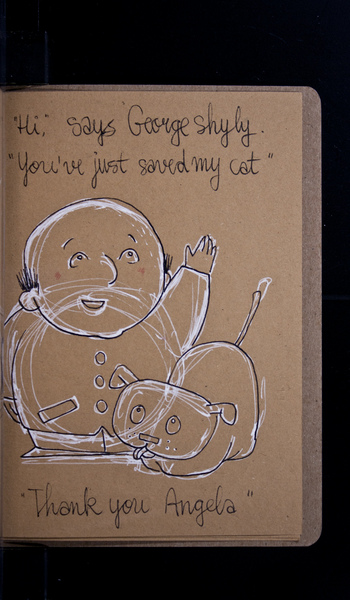 "Hi," says George shyly.
"You've just saved my cat"
"Thank you Angela"